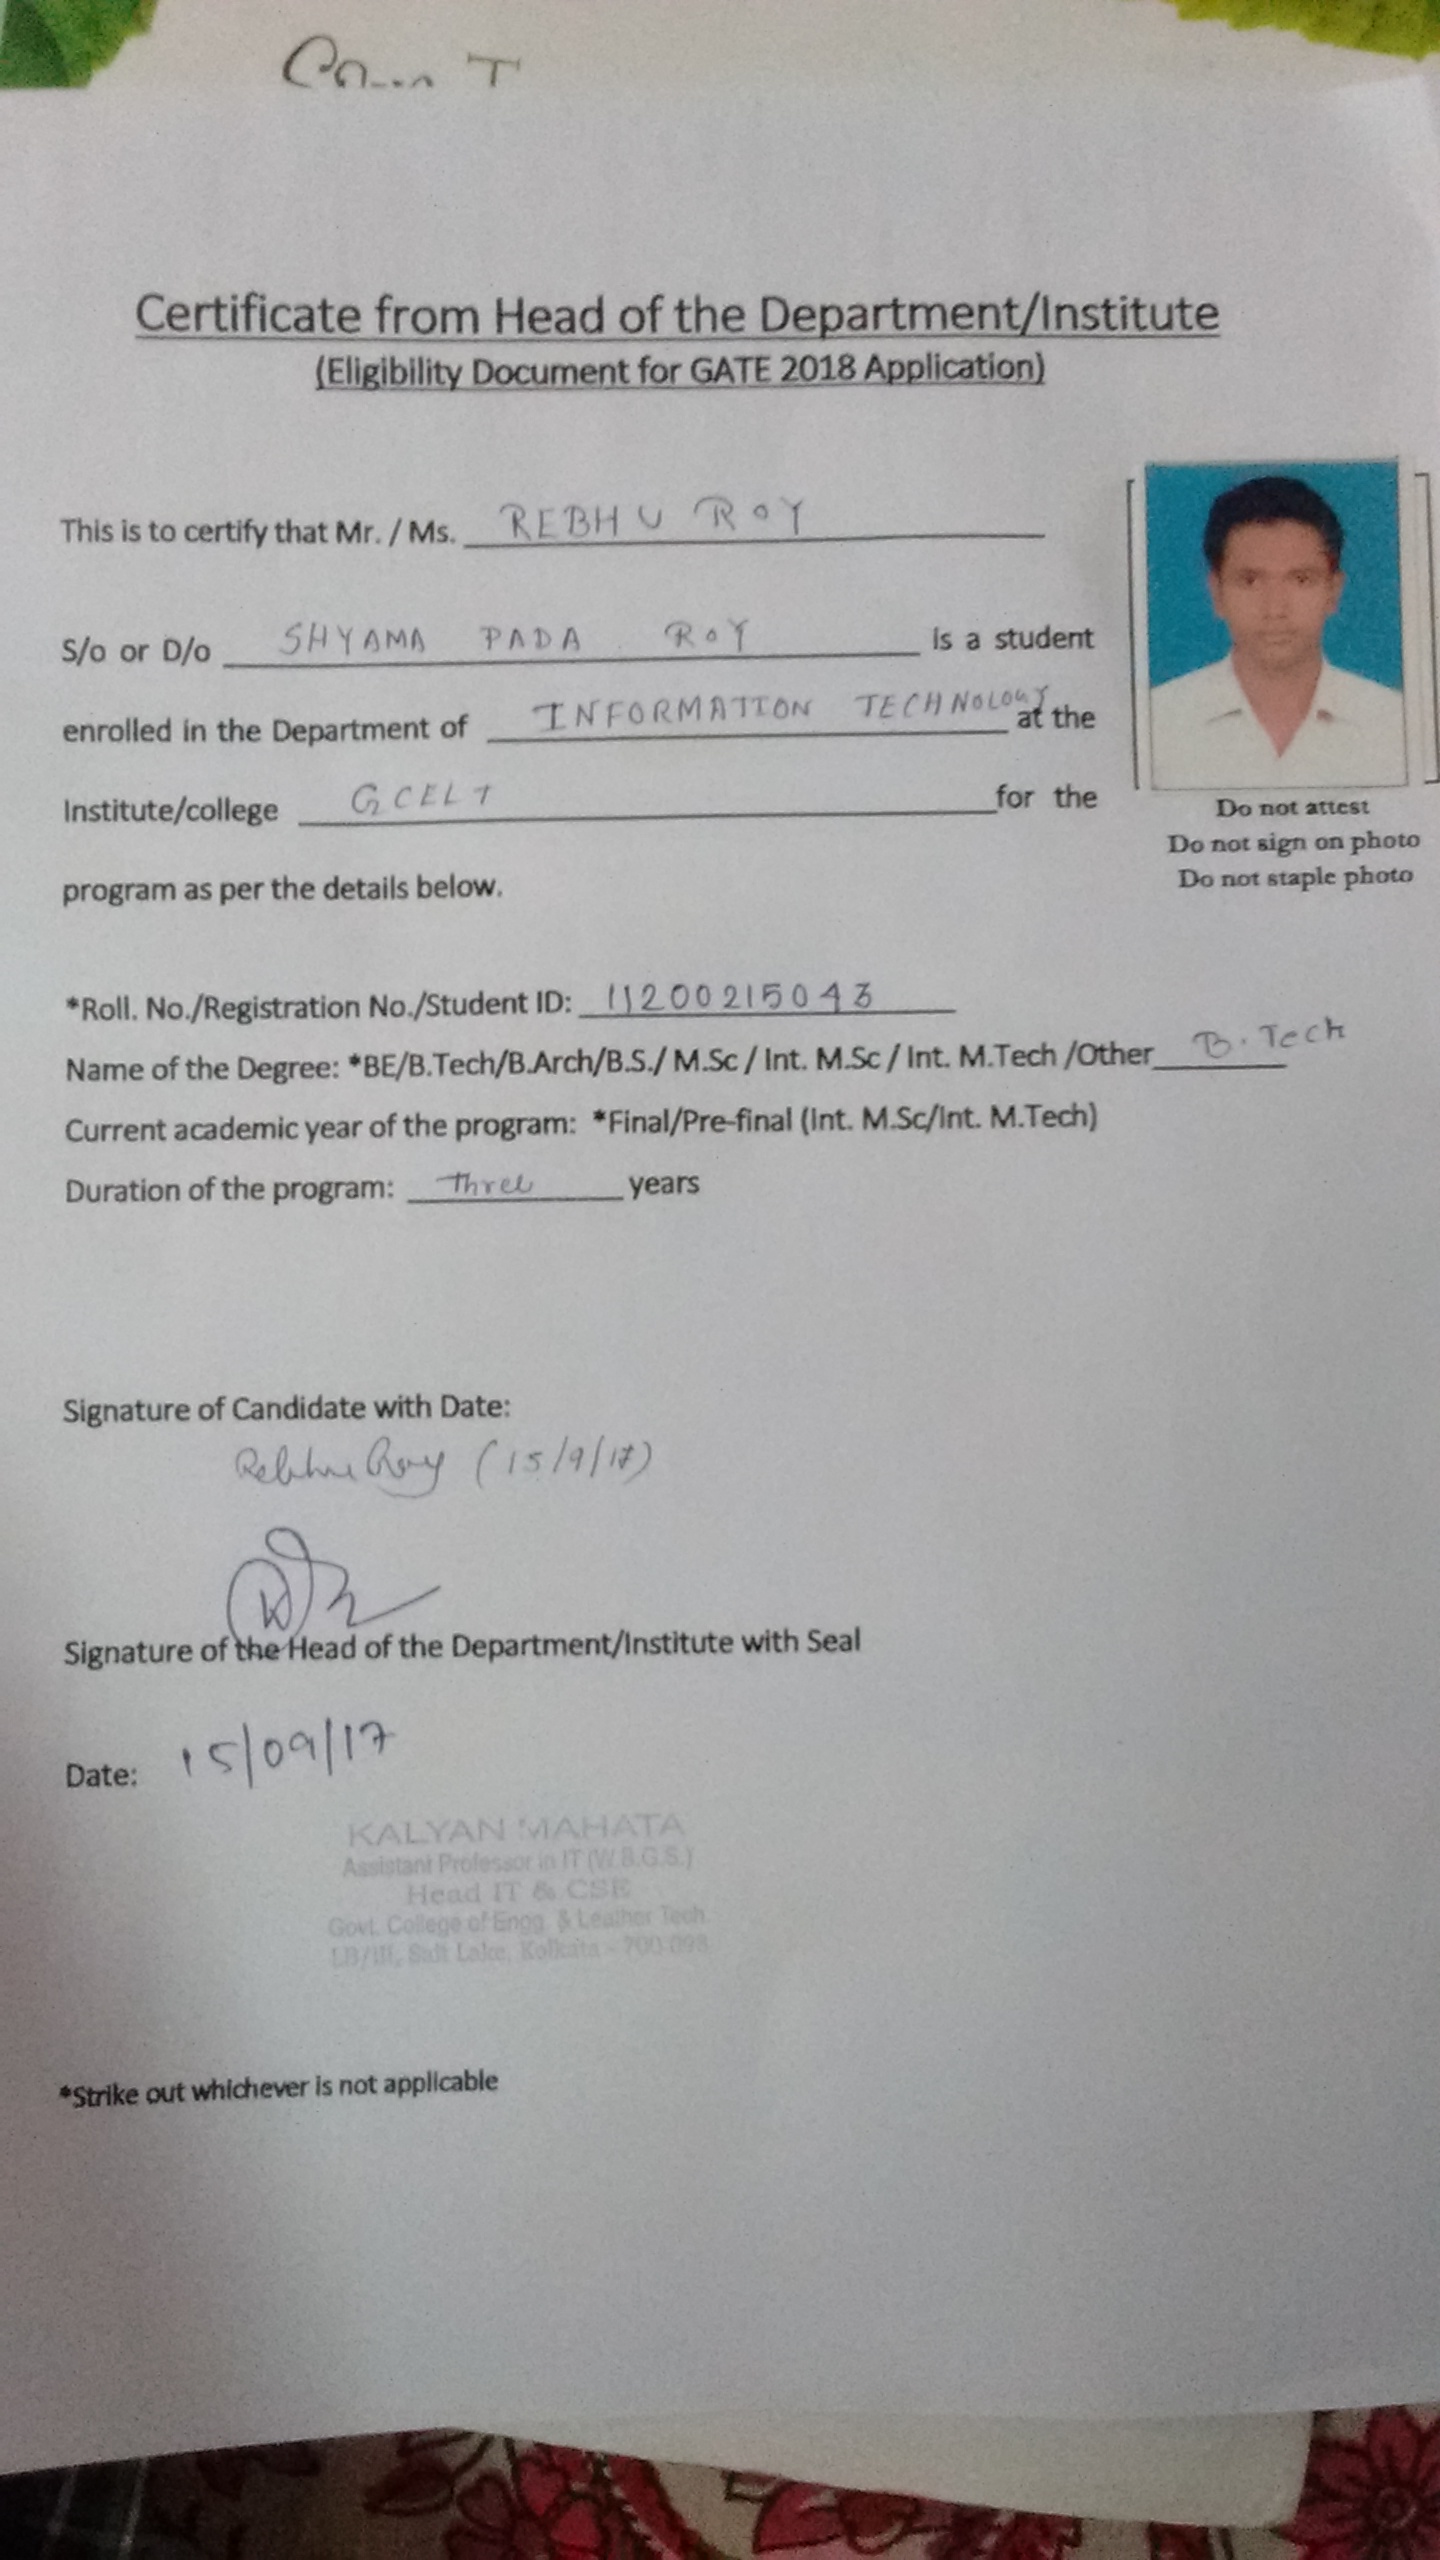 Certificate from Head of the Department/Institute
(Eligibility Document for GATE 2018 Application)
This is to certify that Mr. / Ms. REBHU ROY
S/o or D/o SHYAMA PADA ROY is a student
enrolled in the Department of INFORMATION TECHNOLOGY at the
Institute/college GCELT for the
program as per the details below.
Do not attest
Do not sign on photo
Do not staple photo
*Roll. No./Registration No./Student ID: 11200215043
Name of the Degree: *BE/B.Tech/B.Arch/B.S./ M.Sc / Int. M.Sc / Int. M.Tech /Other B.Tech
Current academic year of the program: *Final/Pre-final (Int. M.Sc/Int. M.Tech)
Duration of the program: Three years
Signature of Candidate with Date:
Rebhu Roy (15/9/17)
Signature of the Head of the Department/Institute with Seal
Date: 15/09/17
KALYAN MAHATA
Assistant Professor in IT (W.B.G.S.)
Head IT & CSE
Govt. College of Engg. & Leather Tech.
LB/III, Salt Lake, Kolkata - 700 098
*Strike out whichever is not applicable